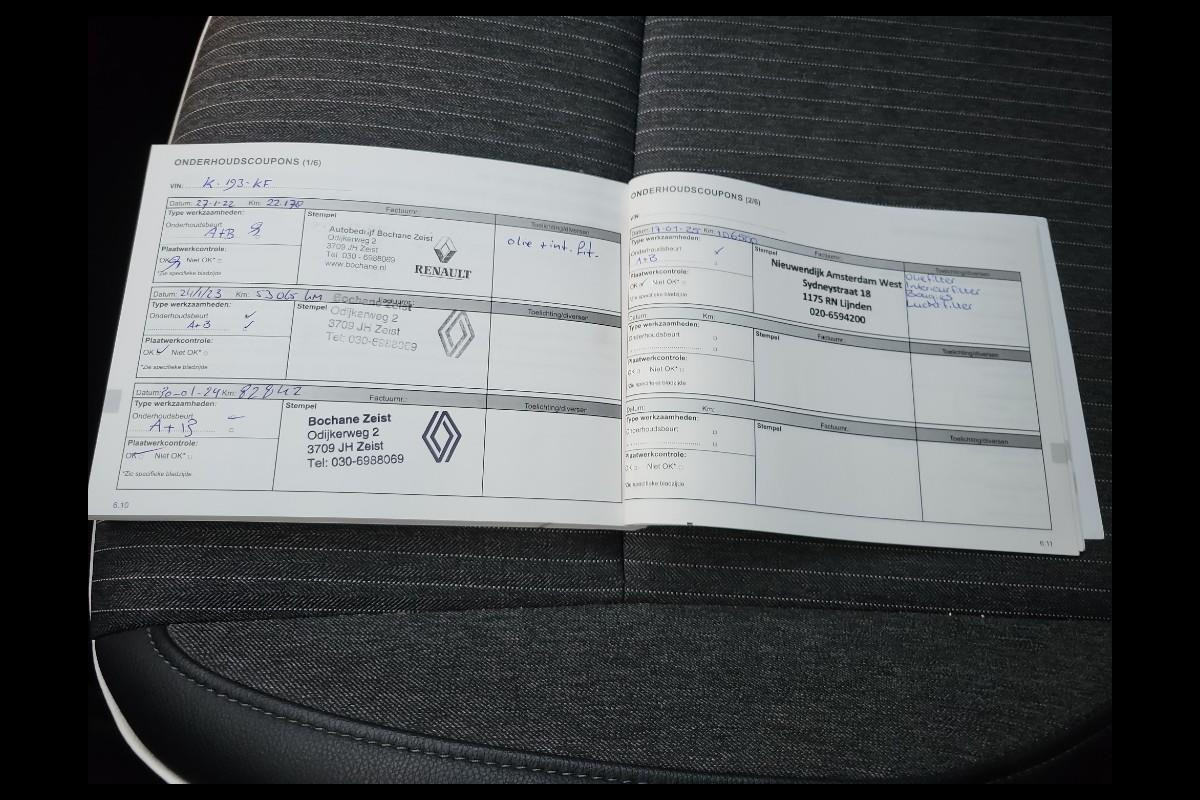 ONDERHOUDSCOUPONS (1/6)
VIN: K-193-KF
Datum: 27-1-22 Km: 22.170 Factuurnr.:
Type werkzaamheden:
Onderhoudsbeurt
A+B
Plaatwerkcontrole:
OK Niet OK*
*Zie specifieke bladzijde
Stempel
Autobedrijf Bochane Zeist
Odijkerweg 2
3709 JH Zeist
Tel. 030 - 6988069
www.bochane.nl
RENAULT
Toelichting/diversen
olie + int. filt.
Datum: 24/1/23 Km: 53065 km Factuurnr.:
Type werkzaamheden:
Onderhoudsbeurt ✓
A+B ✓
Plaatwerkcontrole:
OK ✓ Niet OK*
*Zie specifieke bladzijde
Stempel
Bochane Zeist
Odijkerweg 2
3709 JH Zeist
Tel: 030-6988069
Toelichting/diversen
Datum: 30-01-24 Km: 82842 Factuurnr.:
Type werkzaamheden:
Onderhoudsbeurt
A+B
Plaatwerkcontrole:
OK Niet OK*
*Zie specifieke bladzijde
Stempel
Bochane Zeist
Odijkerweg 2
3709 JH Zeist
Tel: 030-6988069
Toelichting/diversen
6.10
ONDERHOUDSCOUPONS (2/6)
VIN:
Datum: 17-01-25 Km: Factuurnr.:
Type werkzaamheden:
Onderhoudsbeurt ✓
A+B
Plaatwerkcontrole:
OK ✓ Niet OK*
*Zie specifieke bladzijde
Stempel
Nieuwendijk Amsterdam West
Sydneystraat 18
1175 RN Lijnden
020-6594200
Toelichting/diversen
Oliefilter
Interieurfilter
Bougies
Luchtfilter
Datum: Km: Factuurnr.:
Type werkzaamheden:
Onderhoudsbeurt
Plaatwerkcontrole:
OK Niet OK*
*Zie specifieke bladzijde
Stempel
Toelichting/diversen
Datum: Km: Factuurnr.:
Type werkzaamheden:
Onderhoudsbeurt
Plaatwerkcontrole:
OK Niet OK*
*Zie specifieke bladzijde
Stempel
Toelichting/diversen
6.11